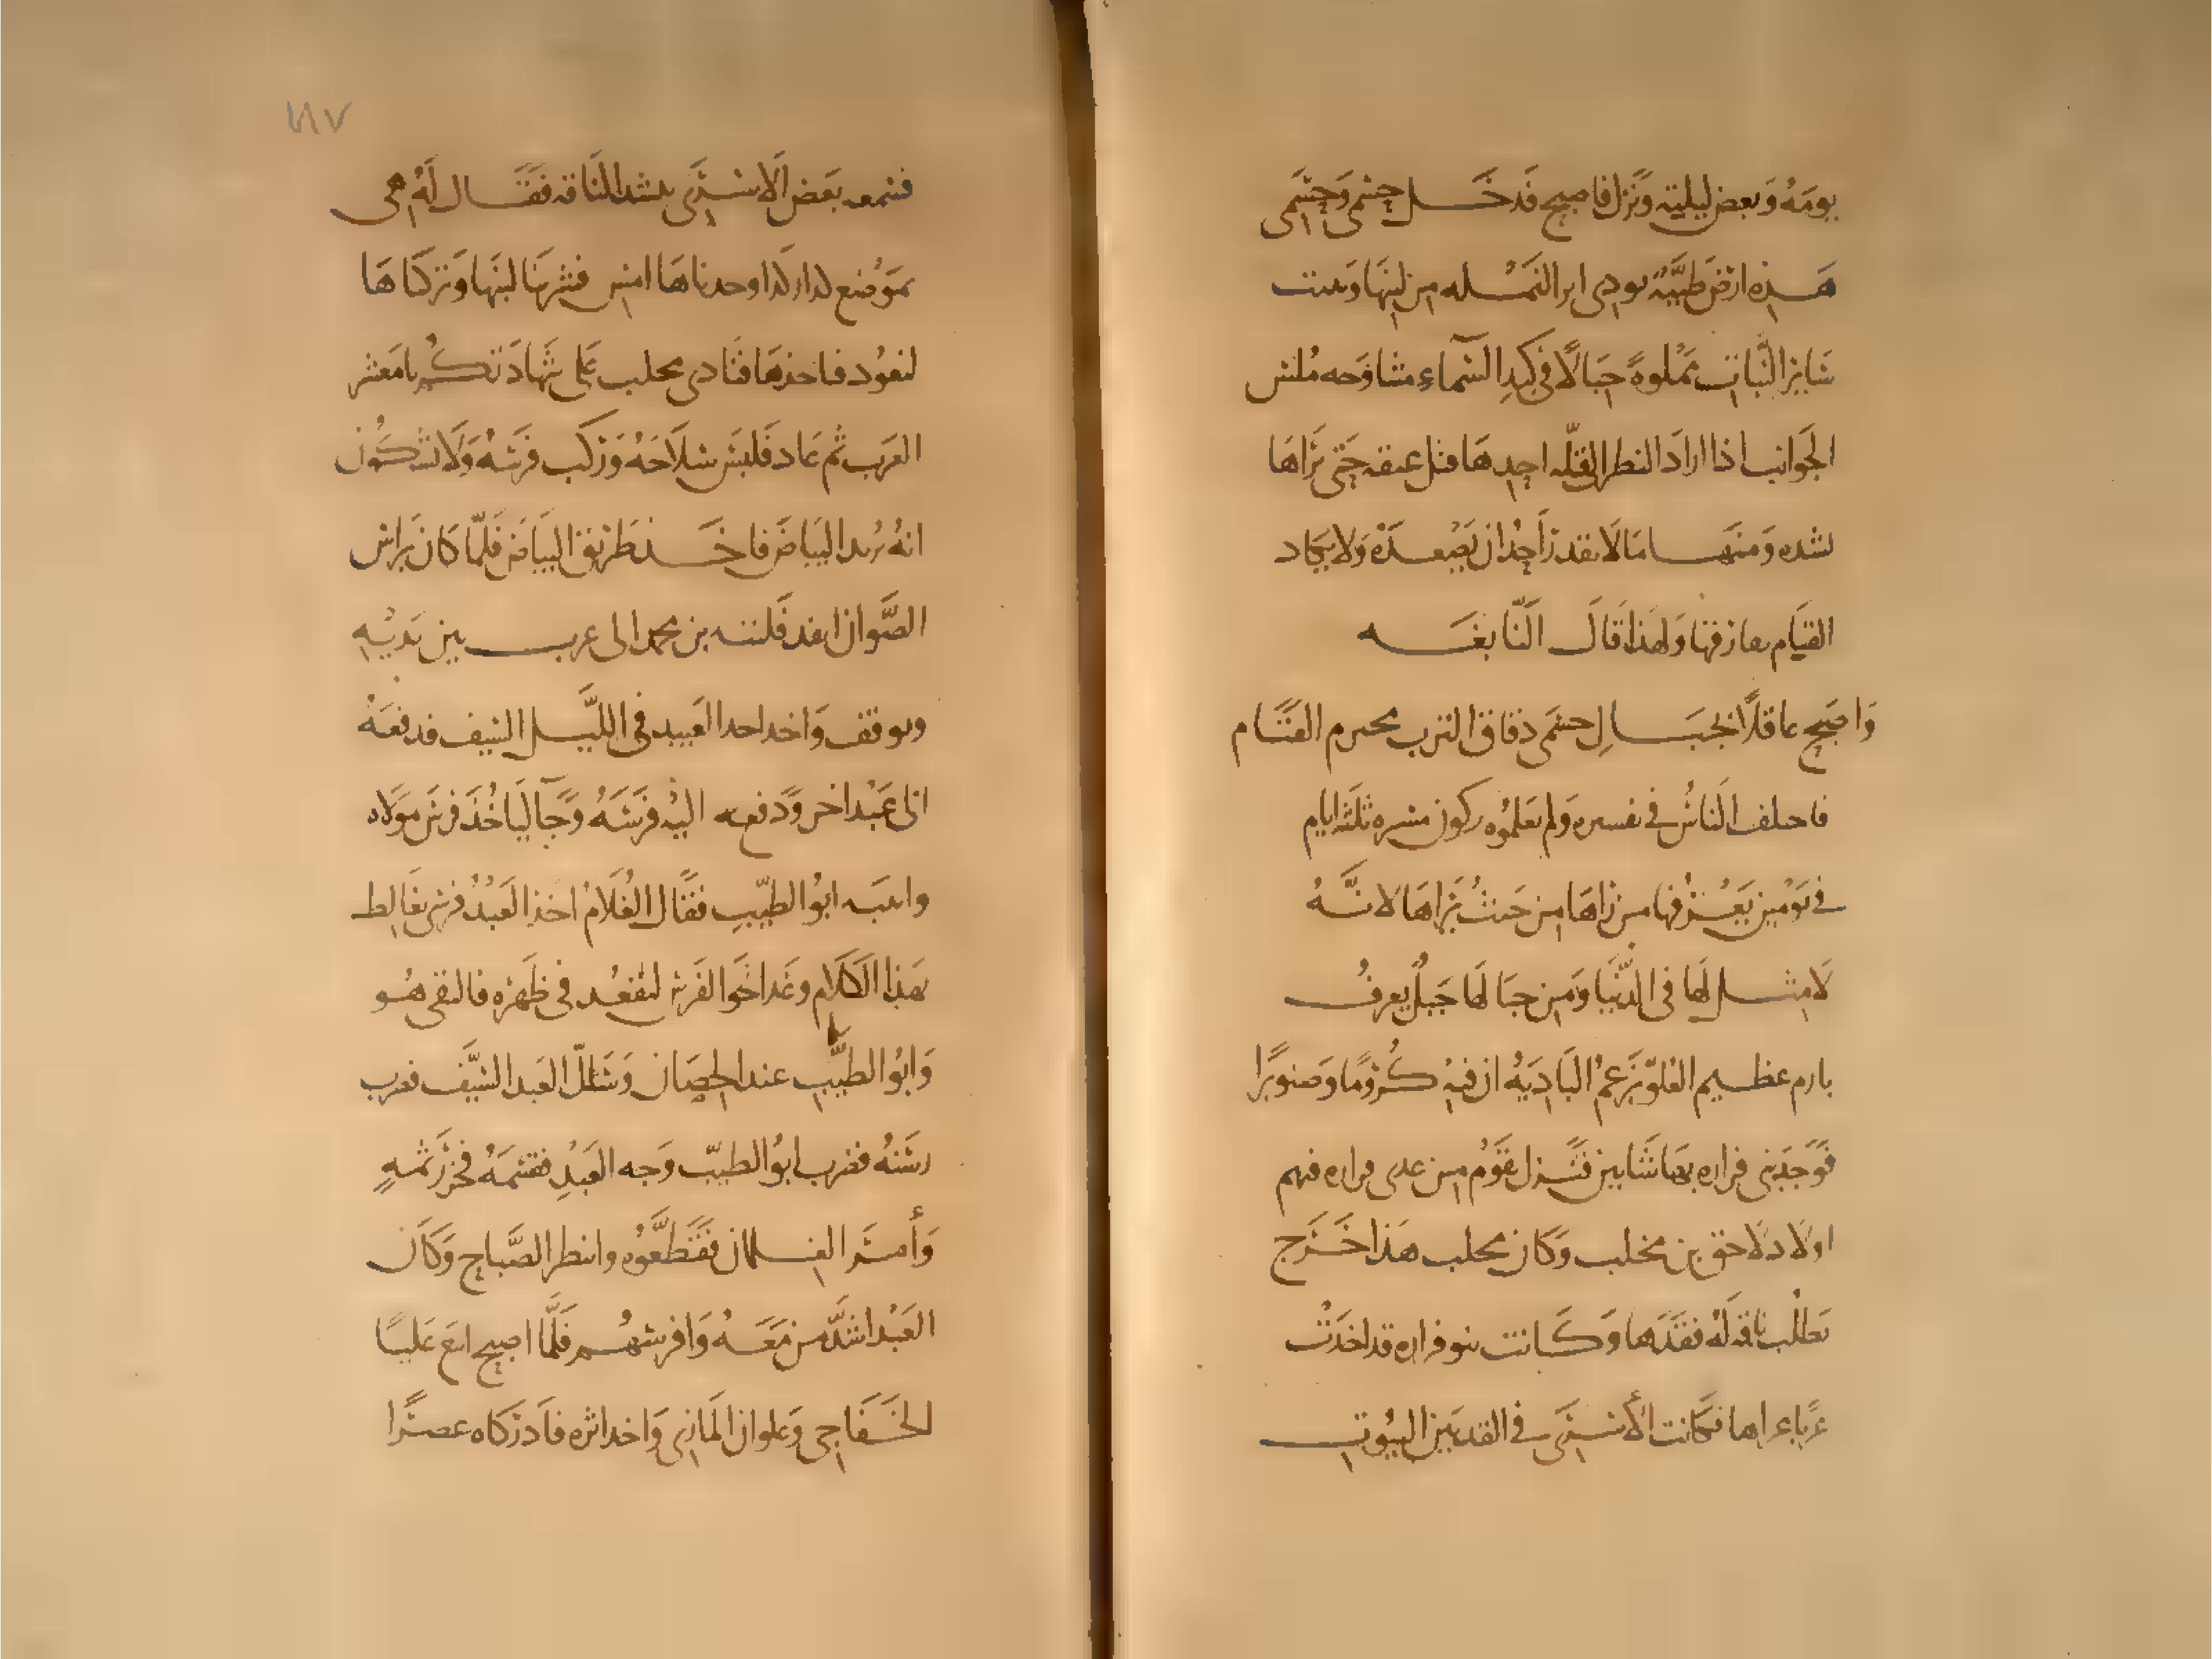 يومَهُ وَبعض ليلته وَنزل فاصبح فَدخَل حِسْمى وَحِسْمَى
هَذِه ارضٌ طَيِّبَة تودى اثر النَمْله مِن لِينهَا وَتنبت
سَايرَ النَّبات مَمْلوةٌ جِبَالًا في كَبِدِ السَّماءِ متناوحه مُلس
الجَوانب اذا ارادَ النظر الى قلّه احدِهَا فتل عنقه حَتى يَرَاهَا
بشده وَمنهَا مَا لَا يقدر اَحَدٌ ان يَصْعدَهُ وَلا يكاد
القيَام يفارقها وَلهَذا قَالَ النَّابغَه
وَاصبَح عاقلًا بجبَالِ حسمَى دقاق الترب محترم القَتَام
فاختلف النَاسُ في تفسيره وَلم يَعلمُوه يكون مسيره ثلثه ايام
في يَوْمَين يَعْرفها من رَاهَا مِن حَيثُ يَرَاهَا لانَّهُ
لَا مِثل لهَا في الدُّنيَا وَمِن جبَالهَا جَبلٌ يعرفُ
بارم عظيم العُلوّ تَزعمُ البَادِيَهُ ان فيهِ كُرومًا وَصنوبَرًا
فوَجَد بَنى فزاره بهَا شَاتين فنَزل بقَوْم مِن عدى فزاره فيهم
اولَاد لَاحق بن مخلب وَكان مخلب هَذا خَرَج
يَطلُب ناقه لَهُ فقَدَهَا وَكَانت بنو فزاره قد اخَذَتْ
غزيا غزاها فكانت الأَسرَى في القد بَين البيُوتِ
١١٨٧
فسَمعه بَعض الَاسرَى ينشد النَاقه فقَال لَهُ هى
بمَوْضع كذا وكذا وجدناهَا امس فشربنَا لبنهَا وَتركنَاهَا
لنعُود فناخذهَا فنَادى مخلب عَلى شهَادَتكُم يا مَعشر
العَرَب ثم عَاد فَلبسَ سلَاحَهُ وَرَكب فرَسَهُ وَلَا تشكّون
انهُ يُريد البيَاض فاخَذ طَريق البيَاض فلَمّا كَان برَاس
الصَّوان انفد فليته بن محمد الى عرب بين يَديْهِ
وتوقف وَاخد احد العَبيد في الليْل السَيف فدفعَهُ
الى عَبْد اخر وَدفع اليْه فرَسَهُ وَجَآ ليَاخُذَ فرَس مَوْلاه
وانتبَه ابُو الطيّبِ فقَال الغُلَامُ اخذ العَبْدُ فرَسى يغَالِط
بهَذا الكَلَام وغَدا نحَو الفَرس ليقعُد في ظَهره فالتقى هُو
وَابُو الطيّبِ عند الحِصَان وَسَلّ العَبد السَّيْف فضرب
رسَنهُ فضرب ابُو الطيبّ وَجه العَبْدِ فقسَمَهُ فخر رَمتهِ
وَأمَر الغِلمان فقَطَّعُوه وانتظر الصَّباح وَكَان
العَبْد اشدَّ من مَعَهُ وَافرسهُم فلَمَّا اصبح اتبع عَليًا
الخَفَاجى وَعلوان المَازنى وَاخد اثره فاَدرَكاه عصرًا